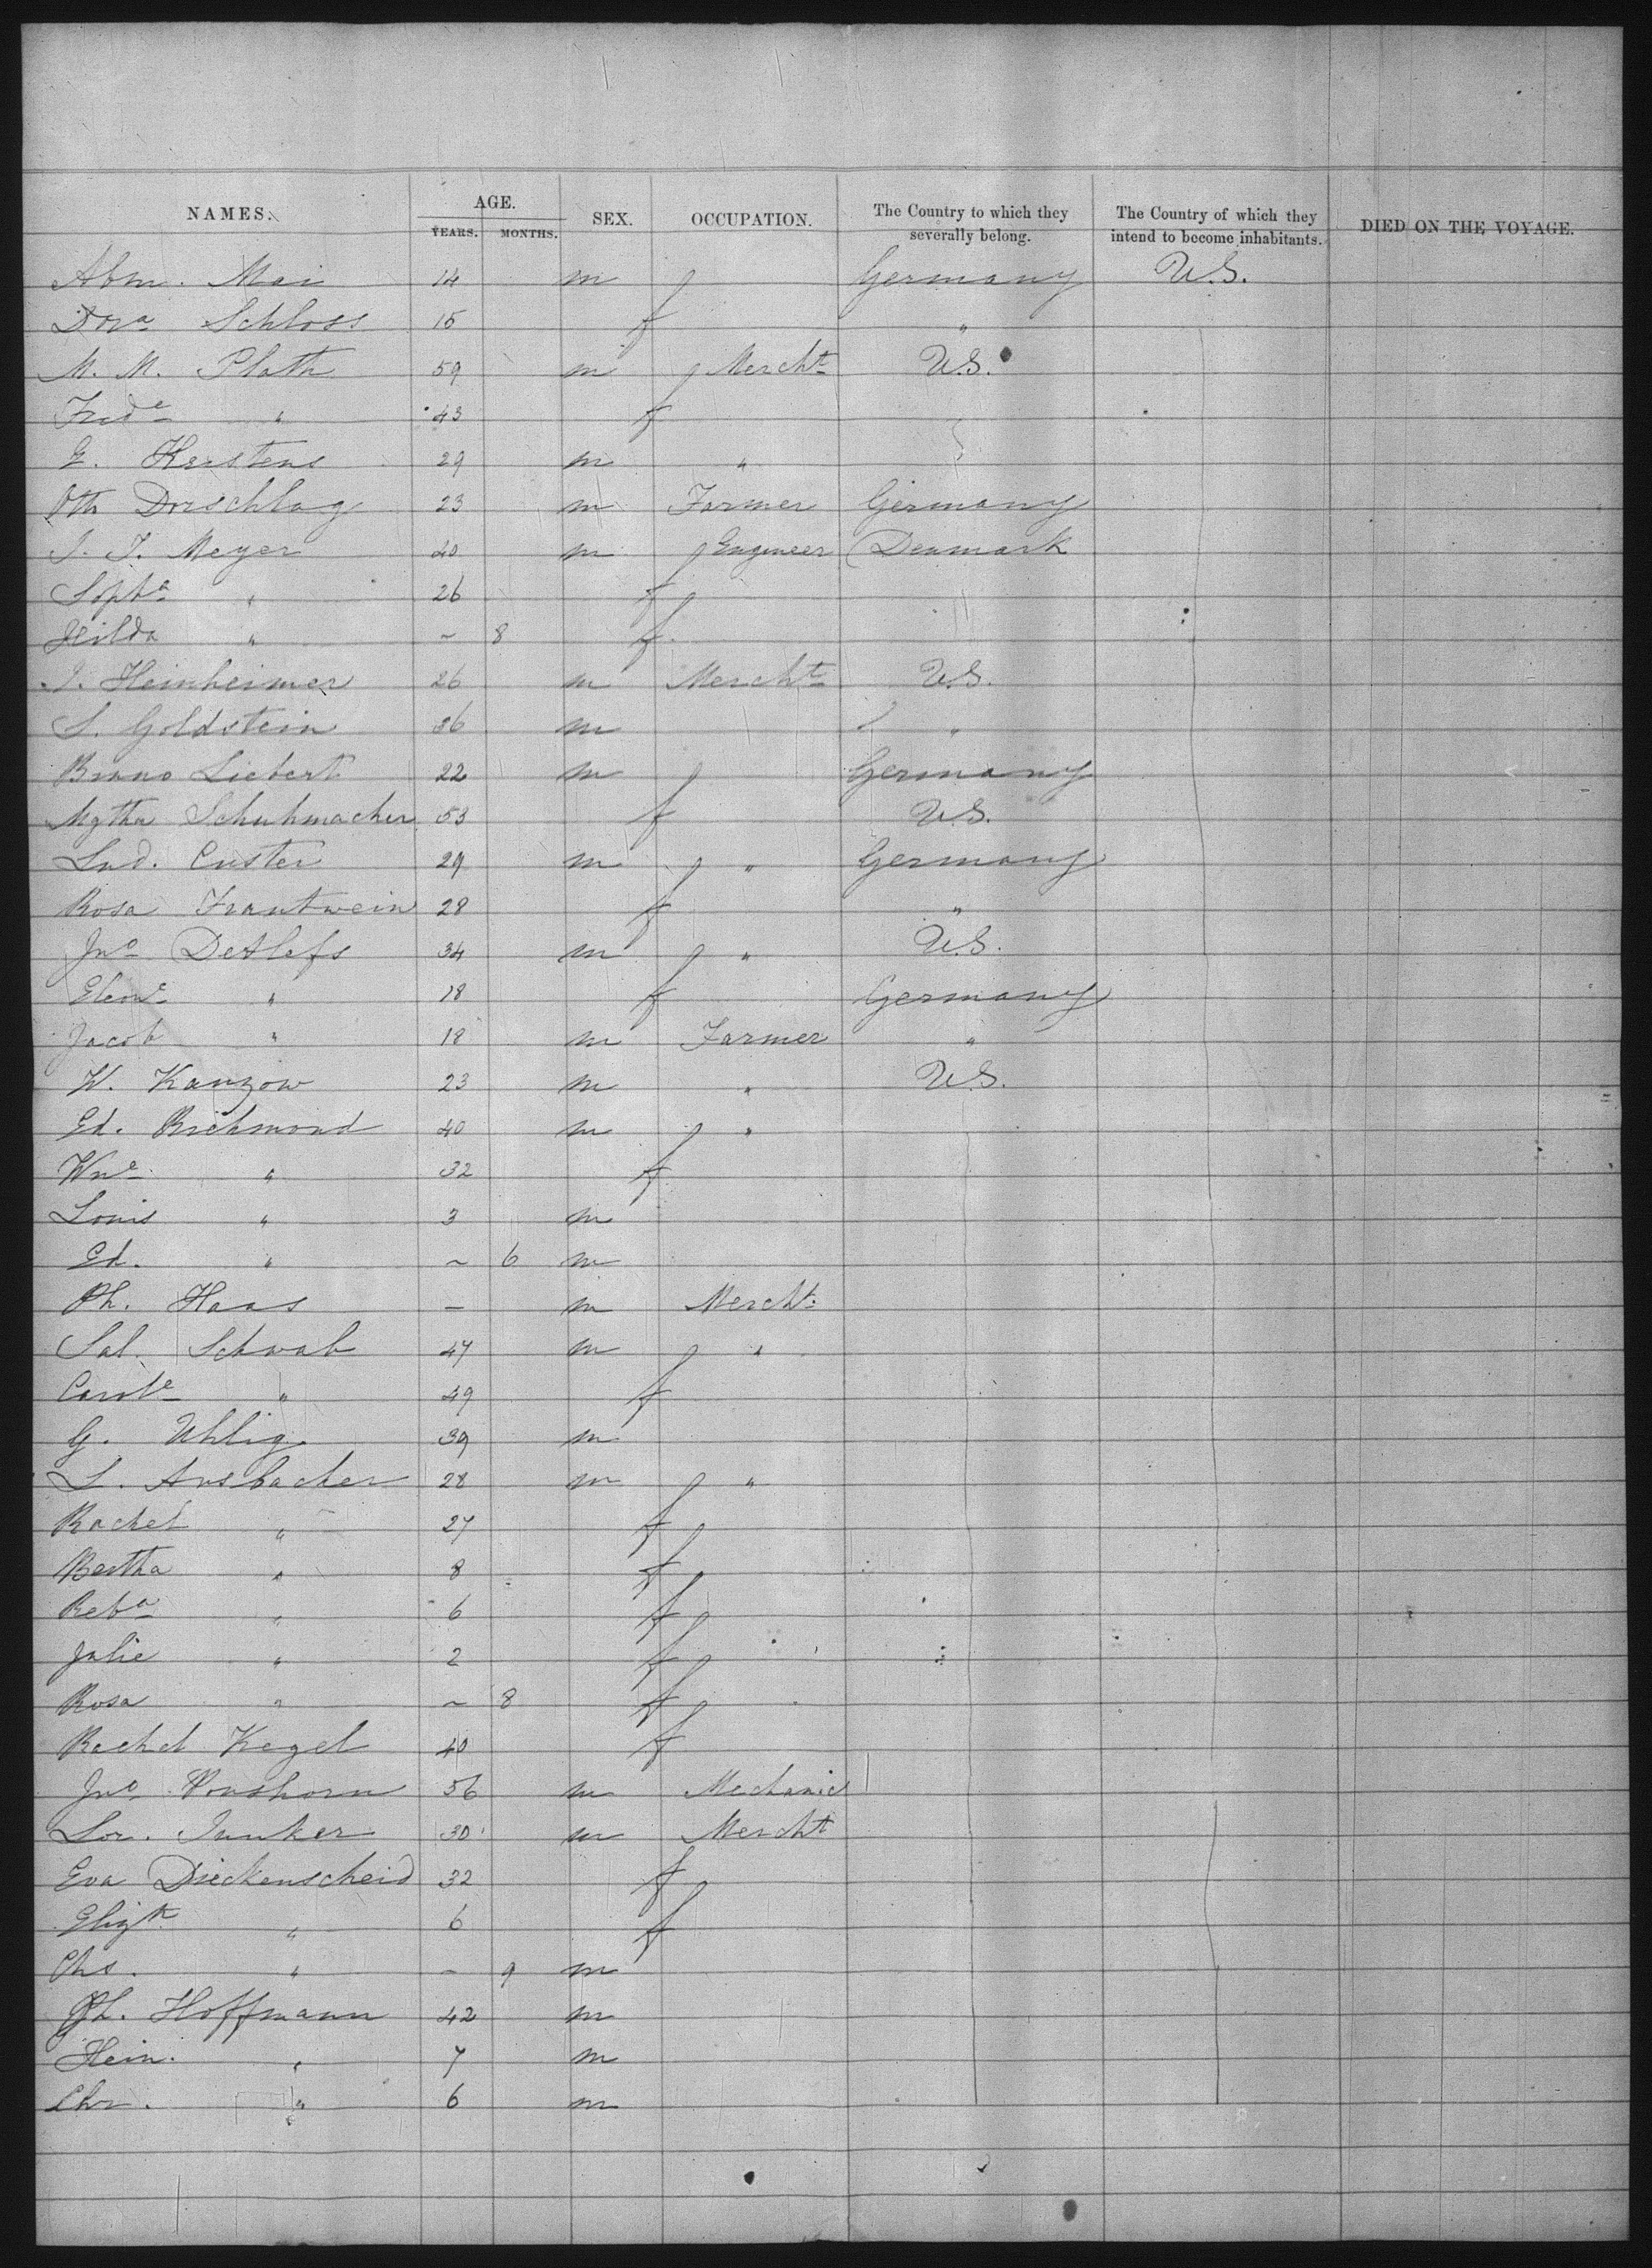 NAMES. AGE. SEX. OCCUPATION. The Country to which they severally belong. The Country of which they intend to become inhabitants. DIED ON THE VOYAGE.
YEARS. MONTHS.
Abm. Mai 14 m Germany U.S.
Dora Schloss 15 f "
M. M. Plath 59 m Mercht U.S.
Frede " 43 f
E. Kerstens 29 m "
Otto Dorschlag 23 m Farmer Germany
J. J. Meyer 40 m Engineer Denmark
Sopha " 26 f
Hilda " ~ 8 f
I. Heinheimer 26 m Mercht U.S.
S. Goldstein 36 m "
Bruno Liebert 22 m Germany
Mgtha Schuhmacher 53 f U.S.
Lud. Custer 29 m " Germany
Rosa Frantwein 28 f "
Jno Detlefs 34 m " U.S.
Eleone " 18 f Germany
Jacob " 18 m Farmer "
W. Kanzow 23 m " U.S.
Ed. Richmond 40 m "
Wne " 32 f
Louis " 3 m
Ed. " ~ 6 m
Ph. Haas – m Mercht.
Sal. Schwab 47 m "
Carole " 49 f
G. Uhlig 39 m
L. Ansbacher 28 m "
Rachel " 27 f
Bertha " 8 f
Reba " 6 f
Julie " 2 f
Rosa " ~ 8 f
Rachel Kegel 40 f
Jno Vonshorn 56 m Mechanic
Lor. Junker 30 m Mercht
Eva Dieckenscheid 32 f
Elizth " 6 f
Chs. " – 9 m
Ph. Hoffmann 42 m
Hein. " 7 m
Chr. " 6 m